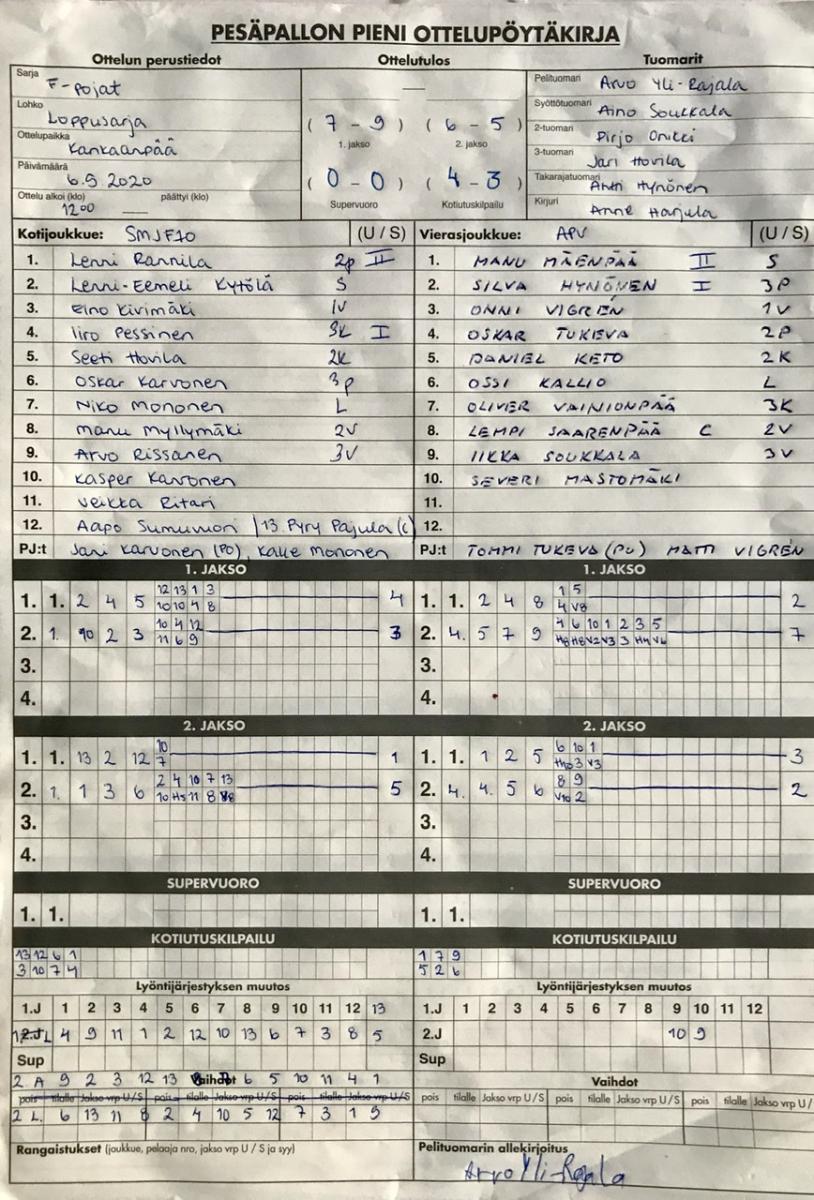 PESÄPALLON PIENI OTTELUPÖYTÄKIRJA
Ottelun perustiedot
Sarja F-pojat
Lohko Loppusarja
Ottelupaikka Kankaanpää
Päivämäärä 6.9 2020
Ottelu alkoi (klo) 12 00 — päättyi (klo)
Ottelutulos
—
( 7 - 9 ) ( 6 - 5 )
1. jakso 2. jakso
( 0 - 0 ) ( 4 - 3 )
Supervuoro Kotiutuskilpailu
Tuomarit
Pelituomari Arvo Yli-Rajala
Syöttötuomari Aino Soukkala
2-tuomari Pirjo Onikki
3-tuomari Jari Hovila
Takarajatuomari Antti Hynönen
Kirjuri Anne Harjula
Kotijoukkue: SMJF10 (U / S)
1. Lenni Rannila 2p II
2. Lenni-Eemeli Kytölä S
3. Eino Kivimäki 1V
4. Iiro Pessinen 3K I
5. Seeti Hovila 2K
6. Oskar Karvonen 3p
7. Niko Mononen L
8. Manu Myllymäki 2V
9. Arvo Rissanen 3V
10. Kasper Karvonen
11. Veikka Ritari
12. Aapo Sumuvuori / 13 Pyry Pajula (c)
PJ:t Jani Karvonen (PO), Kalle Mononen
Vierasjoukkue: APV (U / S)
1. MANU MÄENPÄÄ II S
2. SILVA HYNÖNEN I 3P
3. ONNI VIGREN 1V
4. OSKAR TUKEVA 2P
5. DANIEL KETO 2K
6. OSSI KALLIO L
7. OLIVER VAINIONPÄÄ 3K
8. LEMPI SAARENPÄÄ C 2V
9. IIKKA SOUKKALA 3V
10. SEVERI MASTOMÄKI
11.
12.
PJ:t TOMMI TUKEVA (PO) MATTI VIGREN
1. JAKSO
12 13 1 3
1. 1. 2 4 5 4
10 10 4 8
10 4 12
2. 1. 10 2 3 3
11 6 9
3.
4.
1. JAKSO
1 5
1. 1. 2 4 8 2
4 V8
4 6 10 1 2 3 5
2. 4. 5 7 9 7
H8 H8 V2 V3 3 H4 V6
3.
4.
2. JAKSO
10
1. 1. 13 2 12 1
7
2 4 10 7 13
2. 1. 1 3 6 5
10 H5 11 8
3.
4.
2. JAKSO
6 10 1
1. 1. 1 2 5 3
H10 3 V3
8 9
2. 4. 4. 5 6 2
V10 2
3.
4.
SUPERVUORO
1. 1.
SUPERVUORO
1. 1.
KOTIUTUSKILPAILU
13 12 6 1
3 10 7 4
KOTIUTUSKILPAILU
1 7 9
5 2 6
Lyöntijärjestyksen muutos
1.J 1 2 3 4 5 6 7 8 9 10 11 12 13
1 2.J L 4 9 11 1 2 12 10 13 6 7 3 8 5
Sup
Lyöntijärjestyksen muutos
1.J 1 2 3 4 5 6 7 8 9 10 11 12
2.J 10 9
Sup
2 A 9 2 3 12 13 Vaihdot 6 5 10 11 4 1
pois tilalle Jakso vrp U/S pois tilalle Jakso vrp U/S pois tilalle Jakso vrp U/S
2 L. 6 13 11 8 2 4 10 5 12 7 3 1 9
Vaihdot
pois tilalle Jakso vrp U/S pois tilalle Jakso vrp U/S pois tilalle Jakso vrp U/
Rangaistukset (joukkue, pelaaja nro, jakso vrp U / S ja syy)
Pelituomarin allekirjoitus
Arvo Yli-Rajala